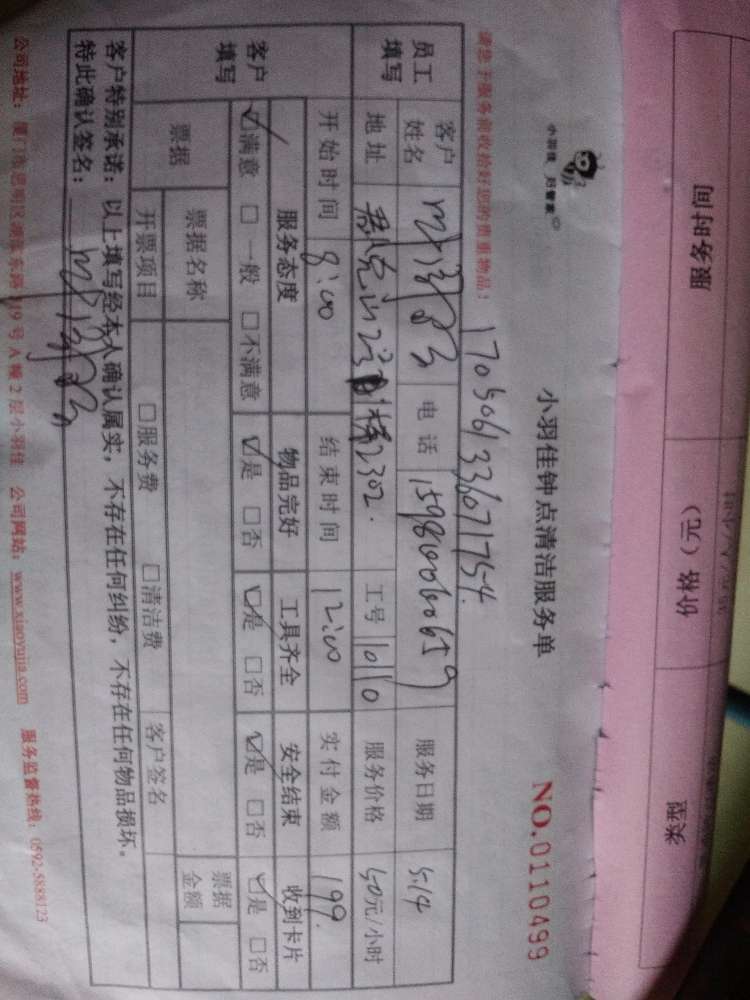 服务时间 价格（元） 类型
小羽佳 好管家
小羽佳钟点清洁服务单
NO.0110499
请您于服务前收拾好您的贵重物品！
员工填写
客户姓名 电话 服务日期 5.14
地址 2302. 工号 10110 服务价格 50元/小时
开始时间 8:00 结束时间 12:00 实付金额 199.
客户填写
服务态度 物品完好 工具齐全 安全结束 收到卡片
☑满意 □一般 □不满意 ☑是 □否 ☑是 □否 ☑是 □否 ☑是 □否
票据 票据名称 票据金额
开票项目 □服务费 □清洁费 客户签名
客户特别承诺：以上填写经本人确认属实，不存在任何纠纷，不存在任何物品损坏。
特此确认签名：
公司地址：厦门市思明区湖滨东路319号A幢2层小羽佳 公司网站：www.xiaoyujia.com 服务监督热线：0592-5888123